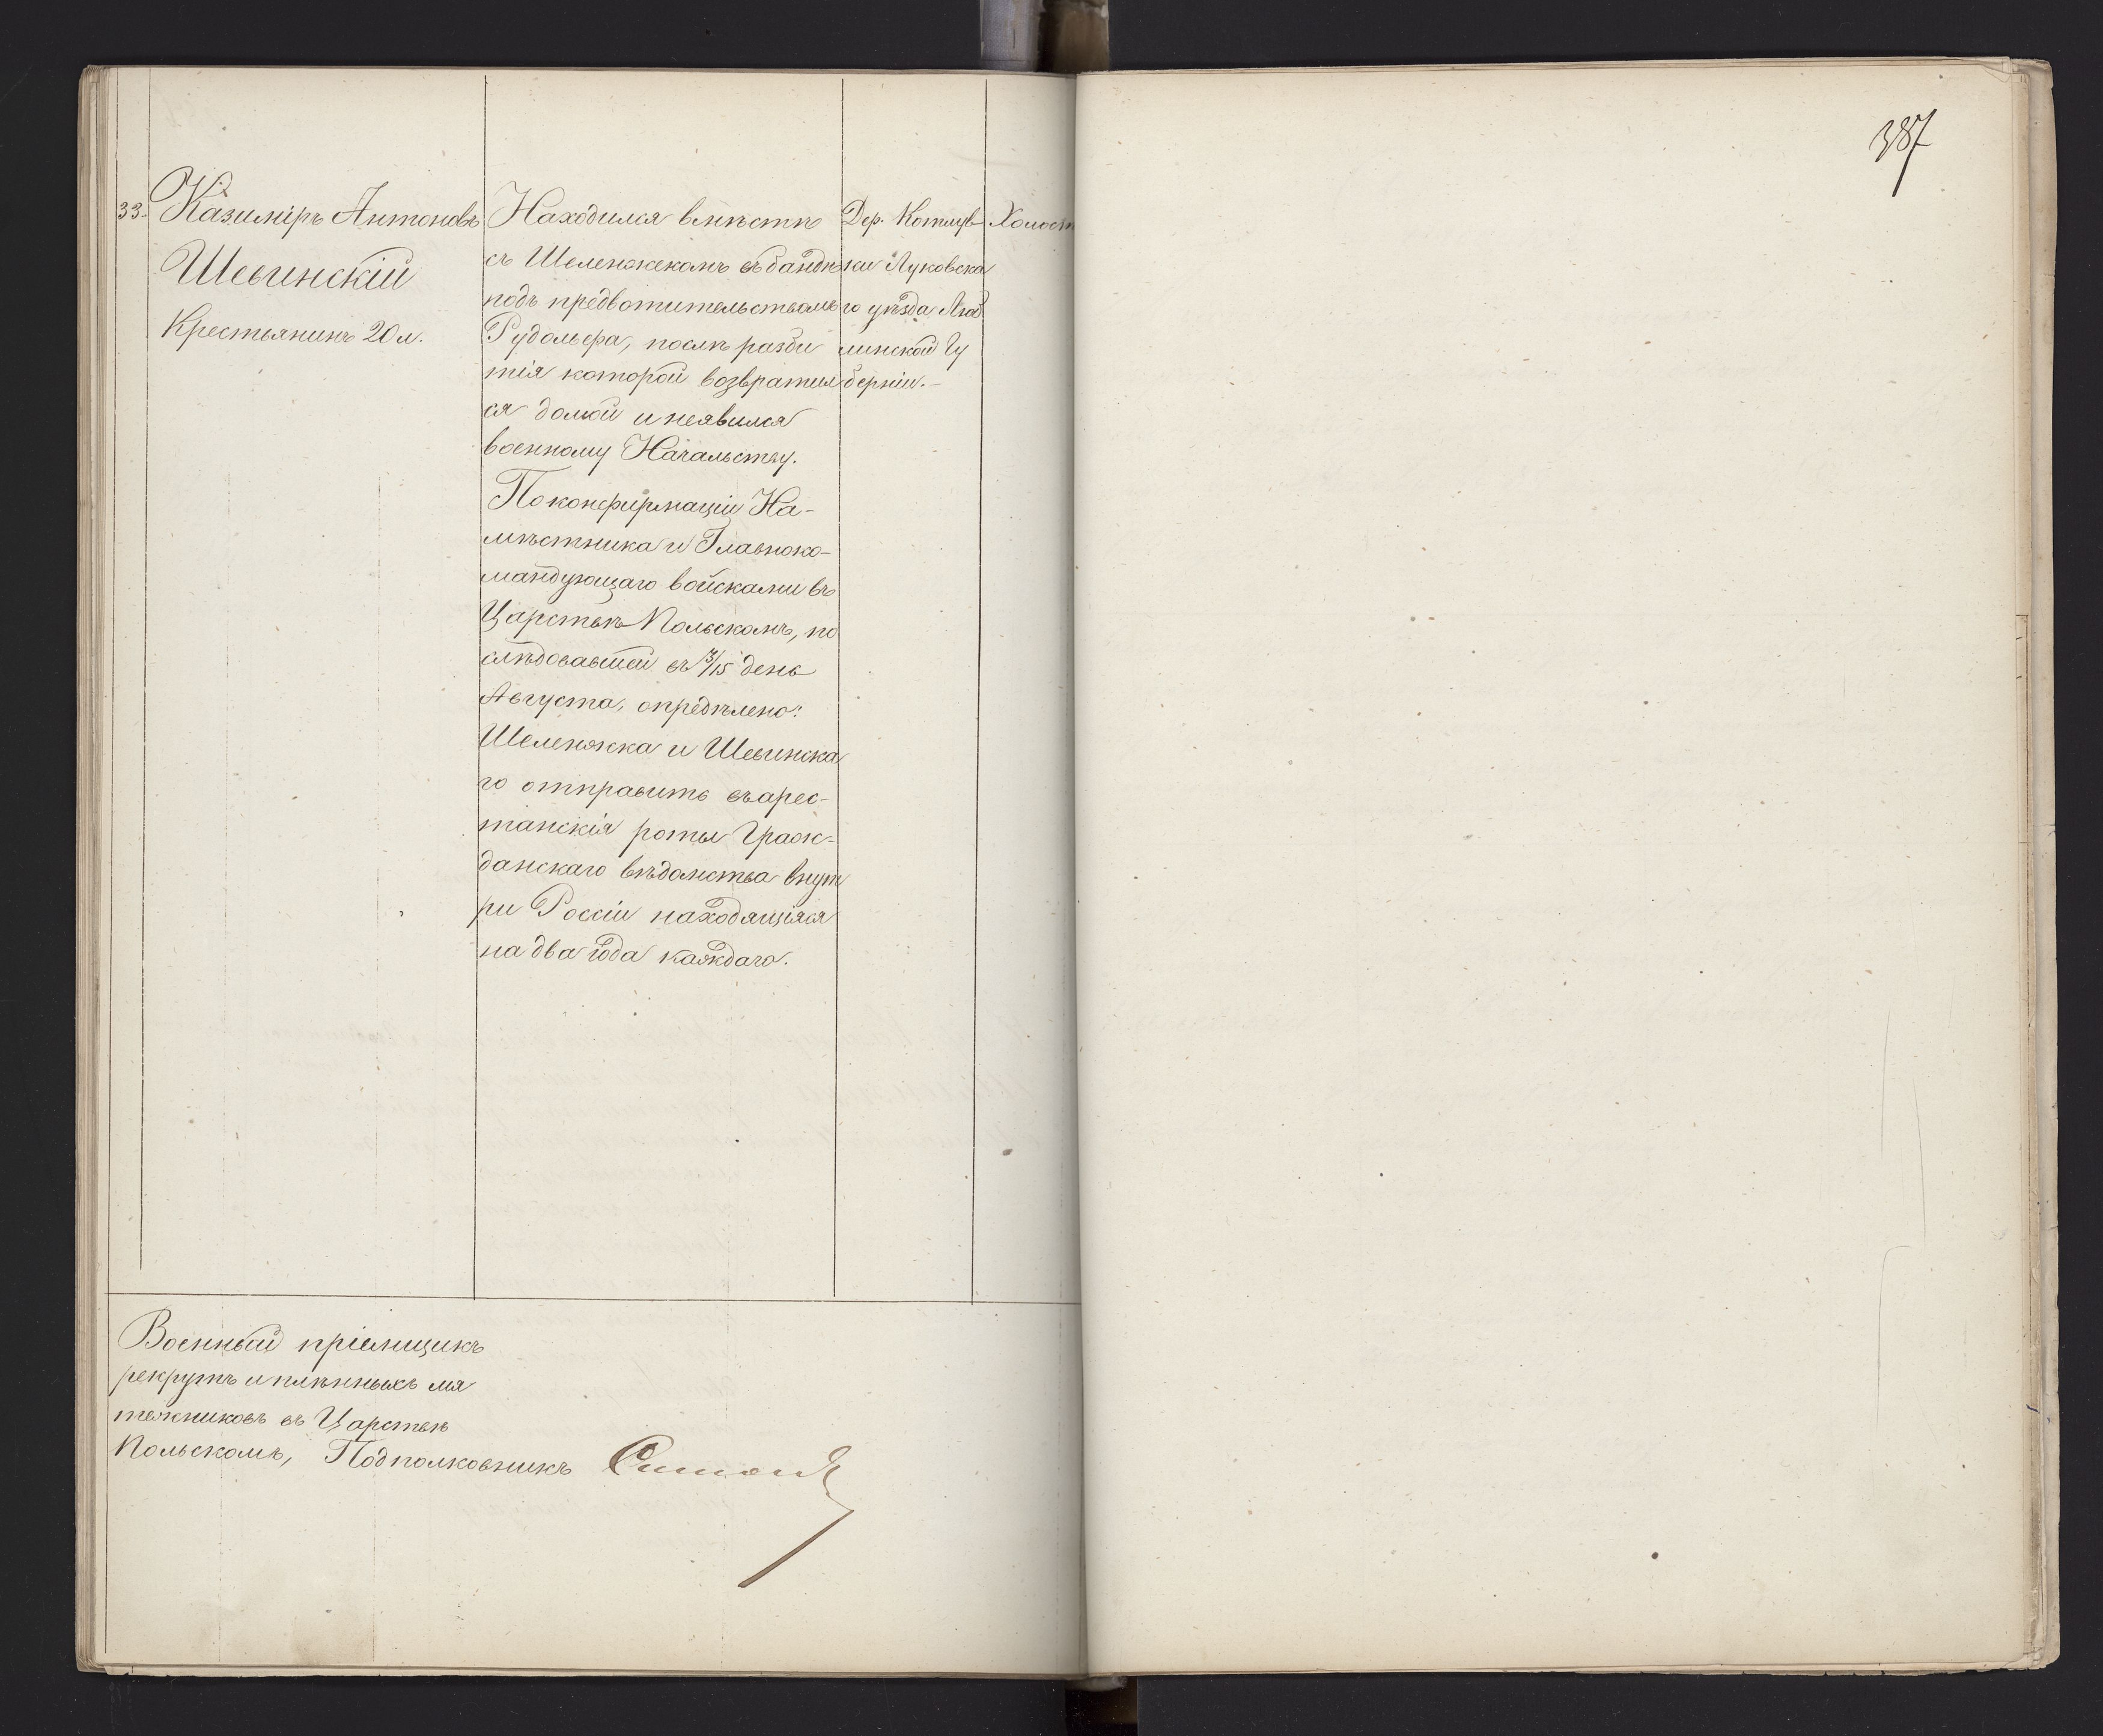 387
33. Казимиръ Антоновъ
Шевинскій
Крестьянинъ 20 л.
Находился вмѣстѣ
съ Шеленжекомъ въ бандѣ
подъ предвотительствомъ
Рудольфа, послѣ разби
тія которой возвратил
ся домой и неявился
военному Начальству.
По конфирмаціи На-
мѣстника и Главноко-
мандующаго войсками въ
Царствѣ Польскомъ, по
слѣдовавшей въ 3/15 день
Августа, опредѣлено:
Шеленжка и Шевинска
го отправить въ арес-
танскія роты Граж-
данскаго вѣдомства внут
ри Россіи находящіяся
на два года каждаго.
Дер.
ки Луковска
го уѣзда Люб
линской Гу
берніи.-
Холост
Военный пріемщикъ
рекрутъ и плѣнныхъ мя
тежниковъ въ Царствѣ
Польскомъ, Подполковникъ